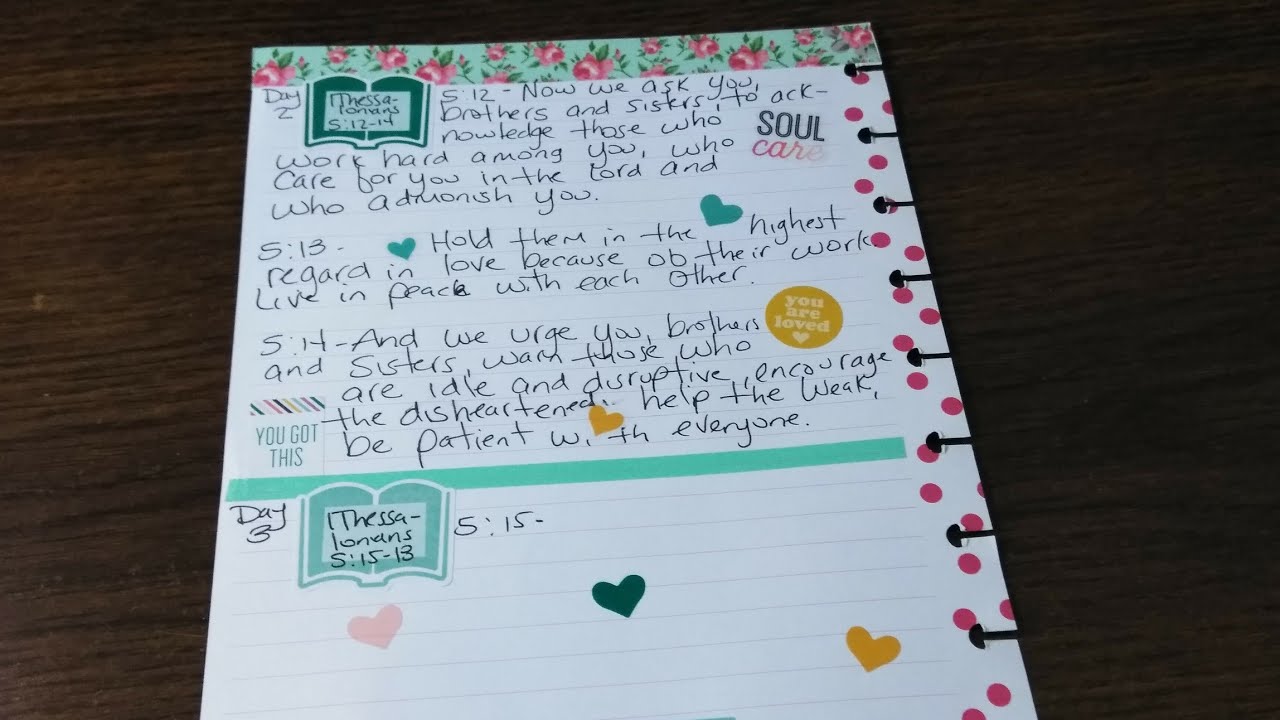 Day
2
1Thessa-
lonians
5:12-14
5:12 - Now we ask you,
brothers and sisters, to ack-
nowledge those who
SOUL
care
work hard among you, who
care for you in the Lord and
who admonish you.
5:13 - Hold them in the highest
regard in love because ob their work
Live in peace with each other.
you
are
loved
5:14 - And we urge you, brothers
and sisters, warn those who
are idle and disruptive, encourage
the disheartened, help the weak,
be patient with everyone.
YOU GOT
THIS
Day
3
1Thessa-
lonians
5:15-13
5:15-